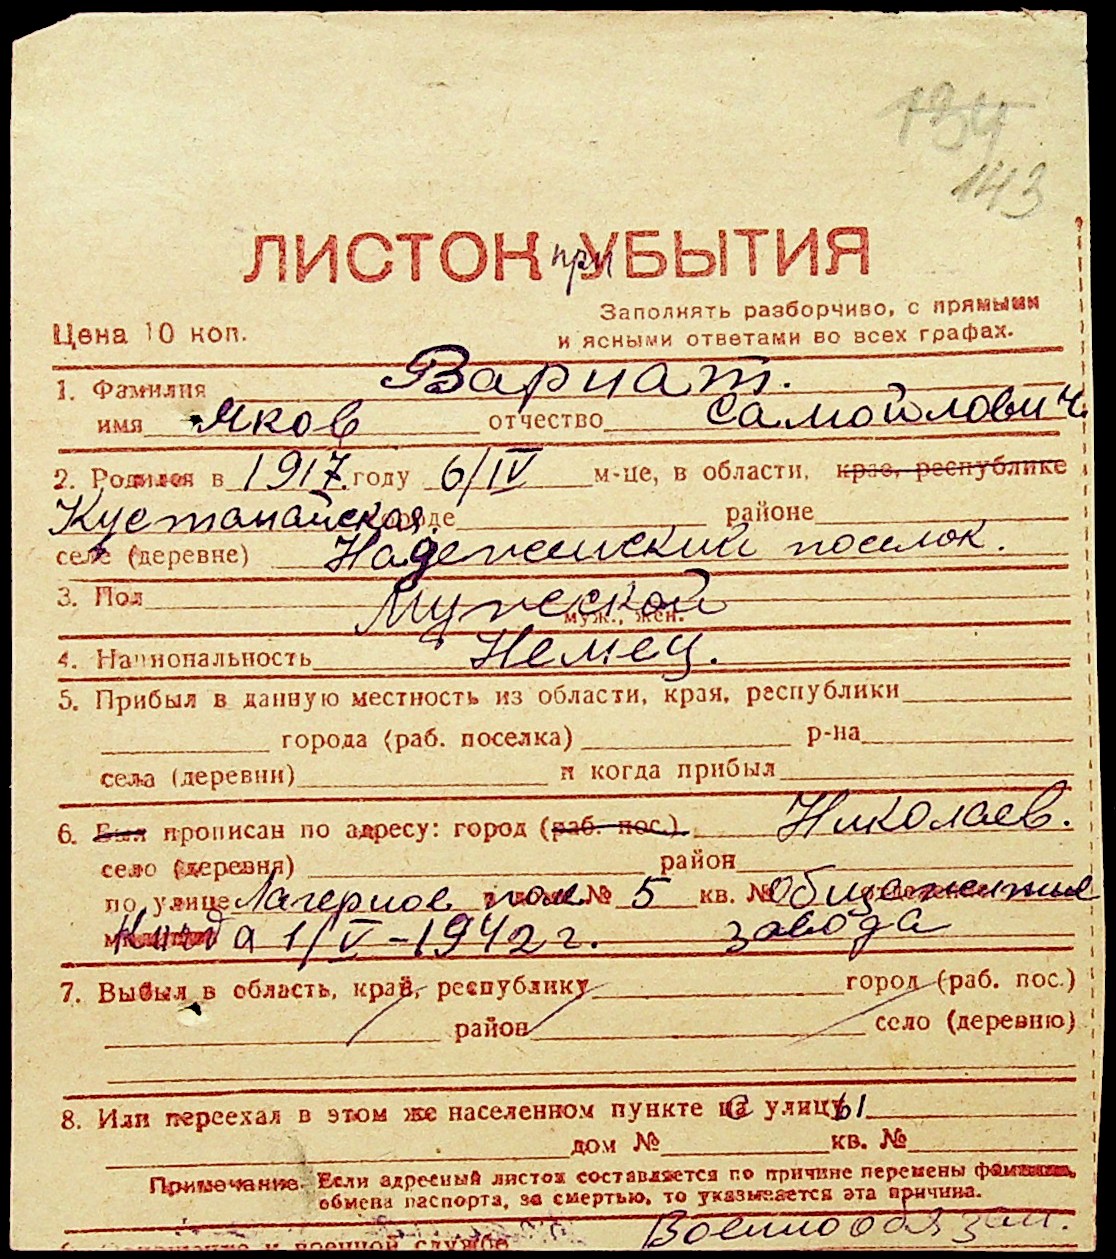 134
143
ЛИСТОК при УБЫТИЯ
Заполнять разборчиво, с прямыми
Цена 10 коп.
и ясными ответами во всех графах.
1. Фамилия Вариат.
имя Яков отчество Самойлович
2. Родился в 1917 году 6/IV м-це, в области, крае, республике
Кустанайская. городе районе
селе (деревне) Надеженский поселок.
3. Пол Мужеской
муж., жен.
4. Национальность Немец.
5. Прибыл в данную местность из области, края, республики
города (раб. поселка) р-на
села (деревни) и когда прибыл
6. Был прописан по адресу: город (раб. пос.) Николаев.
село (деревня) район
по улице Лагерное пол № 5 кв. № Общежитие
Когда 1/V-1942 г. завода
7. Выбыл в область, край, республику город (раб. пос.)
район село (деревню)
8. Или переехал в этом же населенном пункте с улицы
дом № кв. №
Примечание. Если адресный листок составляется по причине перемены фамилии,
обмена паспорта, за смертью, то указывается эта причина.
Военнообязан.
к военной службе